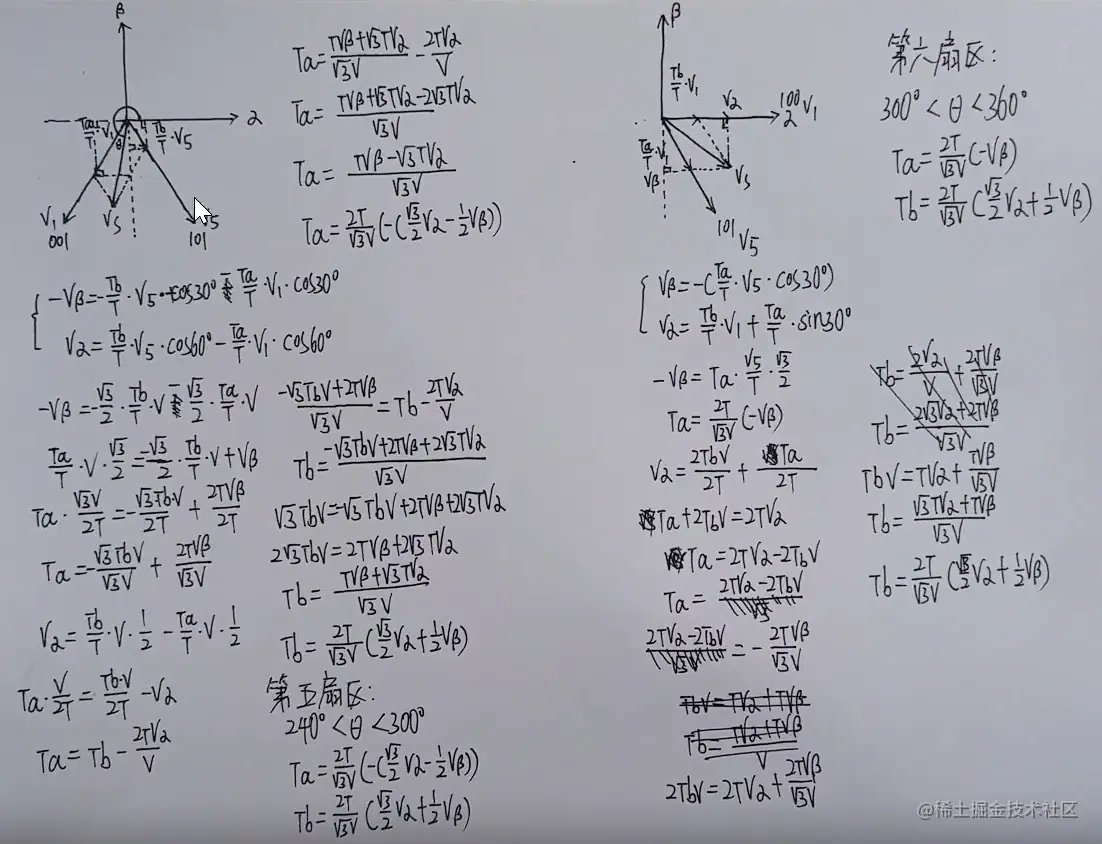 β
α
Ta/T·V₁
θ
Tb/T·V₅
V₁
001
Vs
V5
101
Ta=(TVβ+√3TVα)/(√3V) - 2TVα/V
Ta=(TVβ+√3TVα-2√3TVα)/(√3V)
Ta=(TVβ-√3TVα)/(√3V)
Ta=2T/(√3V)(-(√3/2Vα-1/2Vβ))
-Vβ=-Tb/T·V₅·cos30°-Ta/T·V₁·cos30°
Vα=Tb/T·V₅·cos60°-Ta/T·V₁·cos60°
-Vβ=-√3/2·Tb/T·V-√3/2·Ta/T·V
Ta/T·V·√3/2=-√3/2·Tb/T·V+Vβ
Ta·√3V/2T=-√3Tb·V/2T+2TVβ/2T
Ta=-√3TbV/√3V+2TVβ/√3V
Vα=Tb/T·V·1/2-Ta/T·V·1/2
Ta·V/2T=Tb·V/2T-Vα
Ta=Tb-2TVα/V
(-√3TbV+2TVβ)/(√3V)=Tb-2TVα/V
Tb=(-√3TbV+2TVβ+2√3TVα)/(√3V)
√3TbV=√3TbV+2TVβ+2√3TVα
2√3TbV=2TVβ+2√3TVα
Tb=(TVβ+√3TVα)/(√3V)
Tb=2T/(√3V)(√3/2Vα+1/2Vβ)
第五扇区:
240°<θ<300°
Ta=2T/(√3V)(-(√3/2Vα-1/2Vβ))
Tb=2T/(√3V)(√3/2Vα+1/2Vβ)
β
Tb/T·V₁
Vα
100
V₁
α
Ta/T·V
Vβ
Vs
101
V₅
Vβ=-(Ta/T·V₅·cos30°)
Vα=Tb/T·V₁+Ta/T·sin30°
-Vβ=Ta·V₅/T·√3/2
Ta=2T/(√3V)(-Vβ)
Vα=2TbV/2T+Ta/2T
Ta+2TbV=2TVα
Ta=2TVα-2TbV
Ta=2TVα-2TbV
2TVα-2TbV=-2TVβ/√3V
TbV=TVα+TVβ
Tb=(TVα+TVβ)/V
2TbV=2TVα+2TVβ/√3V
第六扇区:
300°<θ<360°
Ta=2T/(√3V)(-Vβ)
Tb=2T/(√3V)(√3/2Vα+1/2Vβ)
Tb=2Vα/V+2TVβ/√3V
Tb=(2√3Vα+2TVβ)/(√3V)
TbV=TVα+TVβ/√3V
Tb=(√3TVα+TVβ)/(√3V)
Tb=2T/(√3V)(√3/2Vα+1/2Vβ)
@稀土掘金技术社区